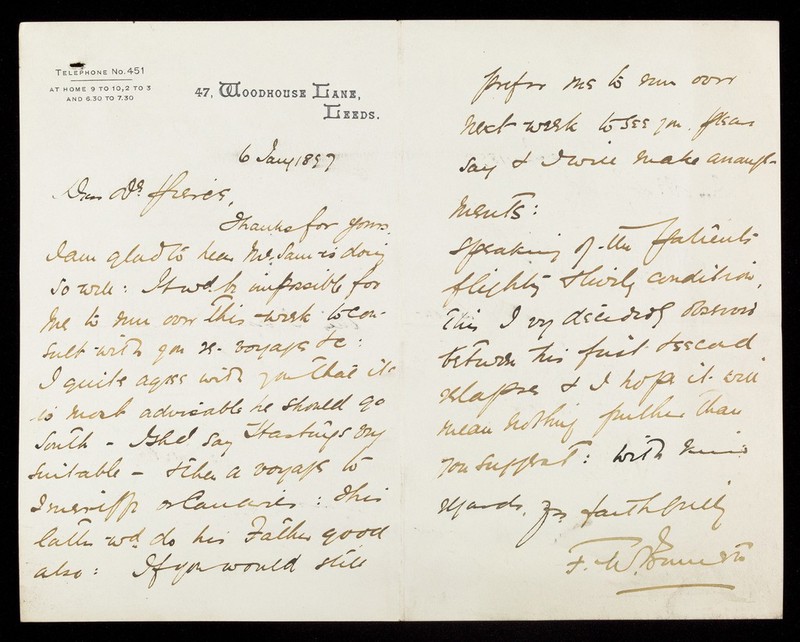 TELEPHONE No. 451
AT HOME 9 TO 10, 2 TO 3
AND 6.30 TO 7.30
47, WOODHOUSE LANE,
LEEDS.
6 Jany 1897
Dear Dr
Thanks for yours.
I am glad to hear Mr. Sam is doing
so well: It wd. be impossible for
me to run over this week to con-
sult with you re- voyage &c:
I quite agree with you that it
is most advisable he should go
South - I shd say Hastings very
suitable - & then a voyage to
Teneriffe or Canaries: This
latter wd. do his Father good
also: If you would still
prefer me to run over
next week to see you. please
say & I will make arrange-
ments:
Speaking of the patients
flighty & lively condition,
this I very decidedly observed
between his first & second
relapse & I hope it will
mean nothing further than
you suggest: With kind
regards, yrs faithfully
F. W.